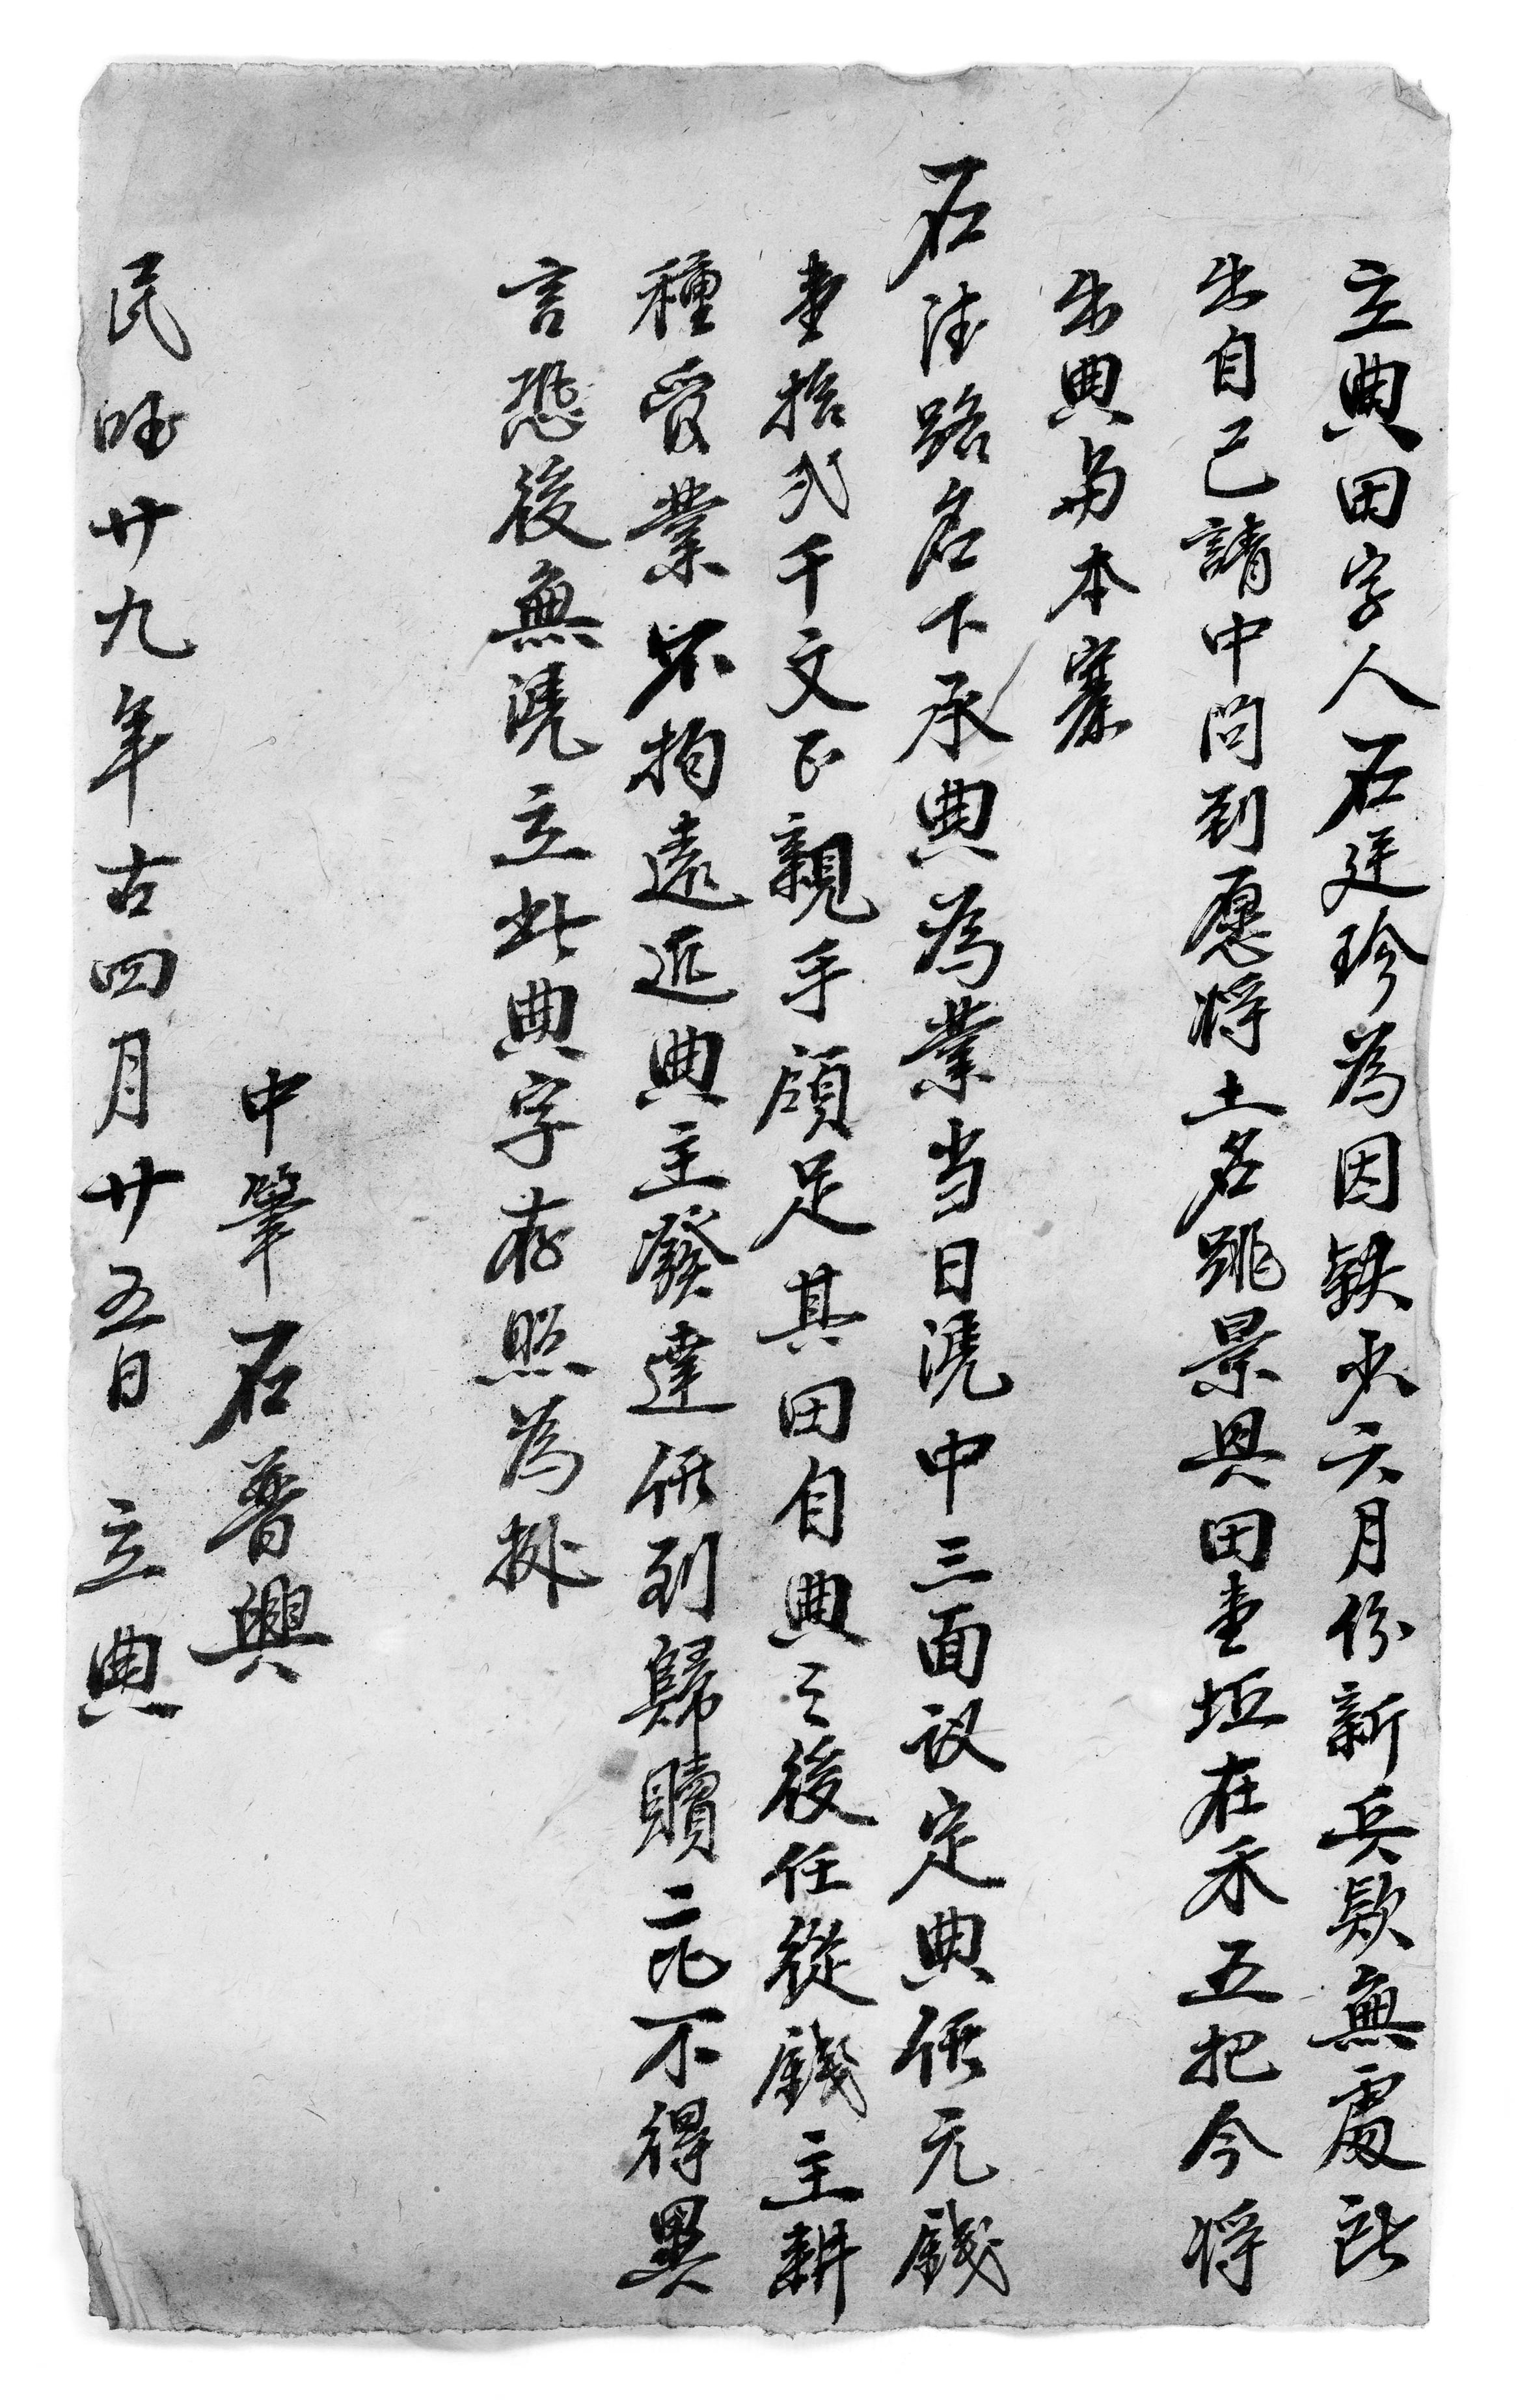 立典田字人石廷珍為因缺少六月份新兵欵無處
出自己請中问到愿将土名跳景具田壹坵在禾五把今将
出典与本寨
石德路名下承典為業当日凴中三面议定典價元錢
壹拾弍千文正親手領足其田自典之後任從錢主耕
種管業不拘遠近典主發達價到歸贖二比不得異
言恐後無凴立此典字存照為挀
中筆 石普興
民旺廿九年古四月廿五日 立典